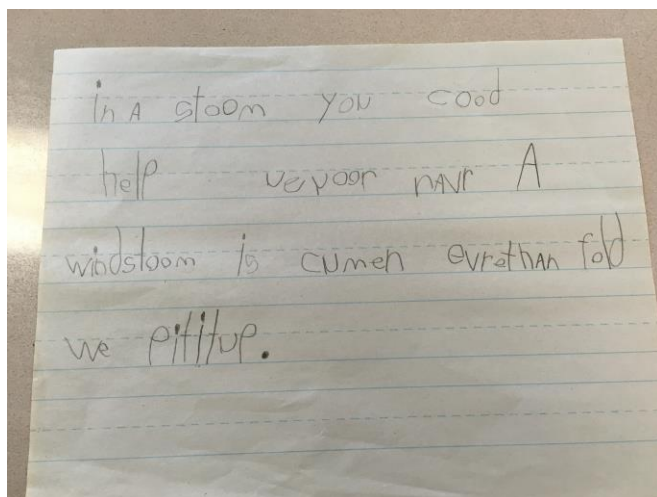 in A stoom you cood
help vepoor navr A
windstoom is cumen evrethan fold
we pititup.